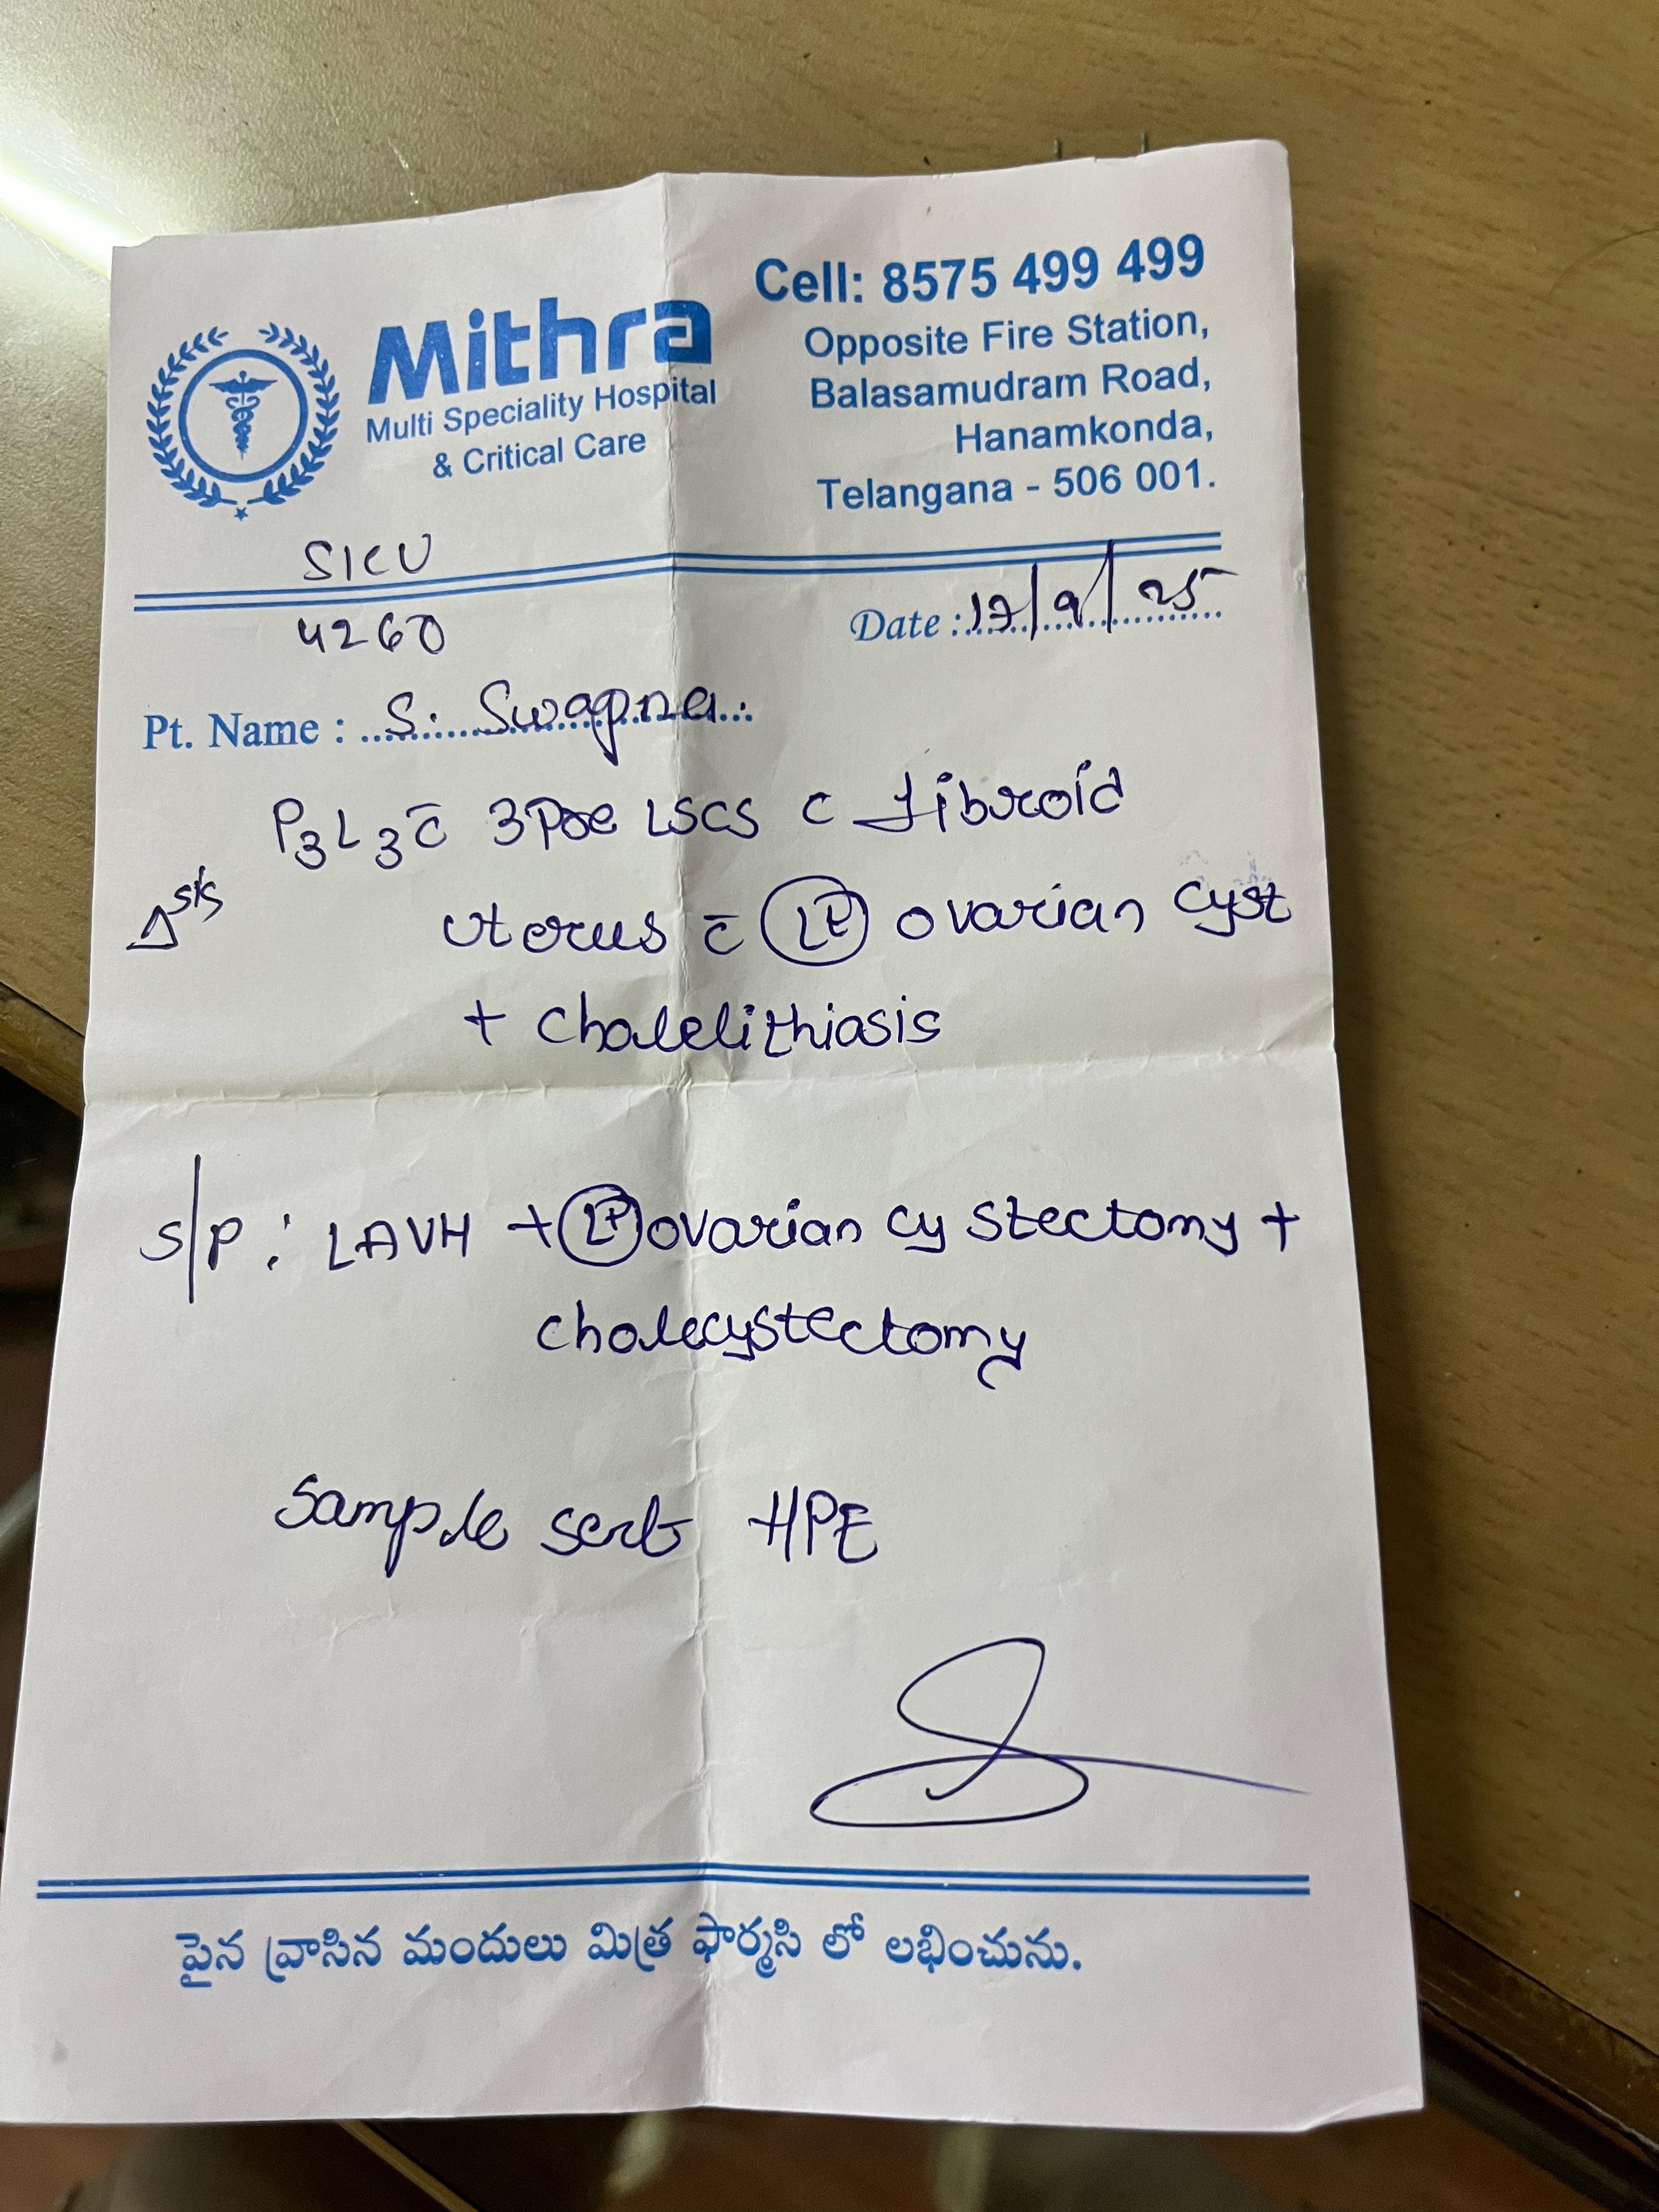 Mithra
Multi Speciality Hospital
& Critical Care
Cell: 8575 499 499
Opposite Fire Station,
Balasamudram Road,
Hanamkonda,
Telangana - 506 001.
SICU
4260
Date : 17/9/25
Pt. Name : S. Swapna.
P3L3 c̄ 3 Pre LSCS c fibroid
Δsis uterus c̄ Lt ovarian cyst
+ Cholelithiasis
S/P : LAVH + Lt ovarian cystectomy +
cholecystectomy
Sample sent HPE
పైన వ్రాసిన మందులు మిత్ర ఫార్మసి లో లభించును.